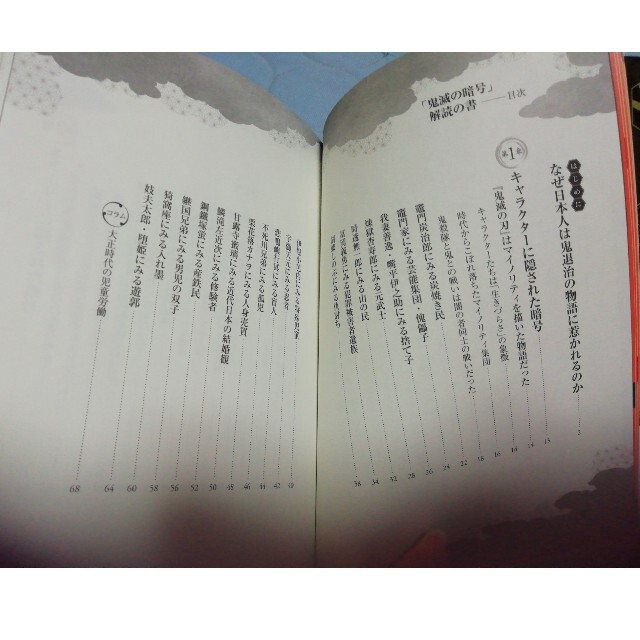 「鬼滅の暗号」
解読の書――目次
はじめに
なぜ日本人は鬼退治の物語に惹かれるのか
2
第1章
キャラクターに隠された暗号
13
『鬼滅の刃』はマイノリティを描いた物語だった
14
キャラクターたちは「生きづらさ」の象徴
16
時代からこぼれ落ちたマイノリティ集団
18
鬼殺隊と鬼との戦いは闇の者同士の戦いだった
22
竈門炭治郎にみる炭焼き民
24
竈門家にみる芸能集団・傀儡子
26
我妻善逸・嘴平伊之助にみる捨て子
28
煉獄杏寿郎にみる元武士
32
時透無一郎にみる山の民
34
冨岡義勇にみる犯罪被害者遺族
38
宇髄天元にみる忍者
42
悲鳴嶼行冥にみる盲人
不死川兄弟にみる孤児
44
栗花落カナヲにみる人身売買
46
甘露寺蜜璃にみる近代日本の結婚観
48
鱗滝左近次にみる修験者
50
鋼鐵塚蛍にみる産鉄民
52
継国兄弟にみる男児の双子
56
猗窩座にみる入れ墨
58
妓夫太郎・堕姫にみる遊郭
60
コラム
大正時代の児童労働
64
68